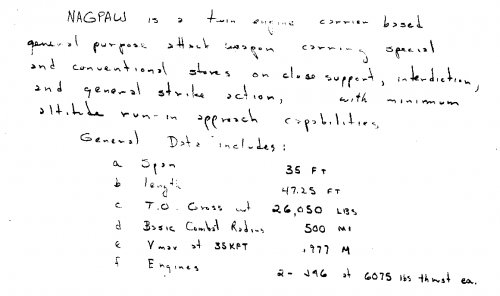 NAGPAW is a twin engine carrier based
general purpose attack weapon carrying special
and conventional stores on close support, interdiction,
and general strike action, with minimum
altitude run-in approach capabilities
General Data includes:
a Span 35 FT
b length 47.25 FT
c T.O. Gross wt 26,050 LBS
d Basic Combat Radius 500 MI
e Vmax at 35KFT .977 M
f Engines 2- J46 at 6075 lbs thrust ea.